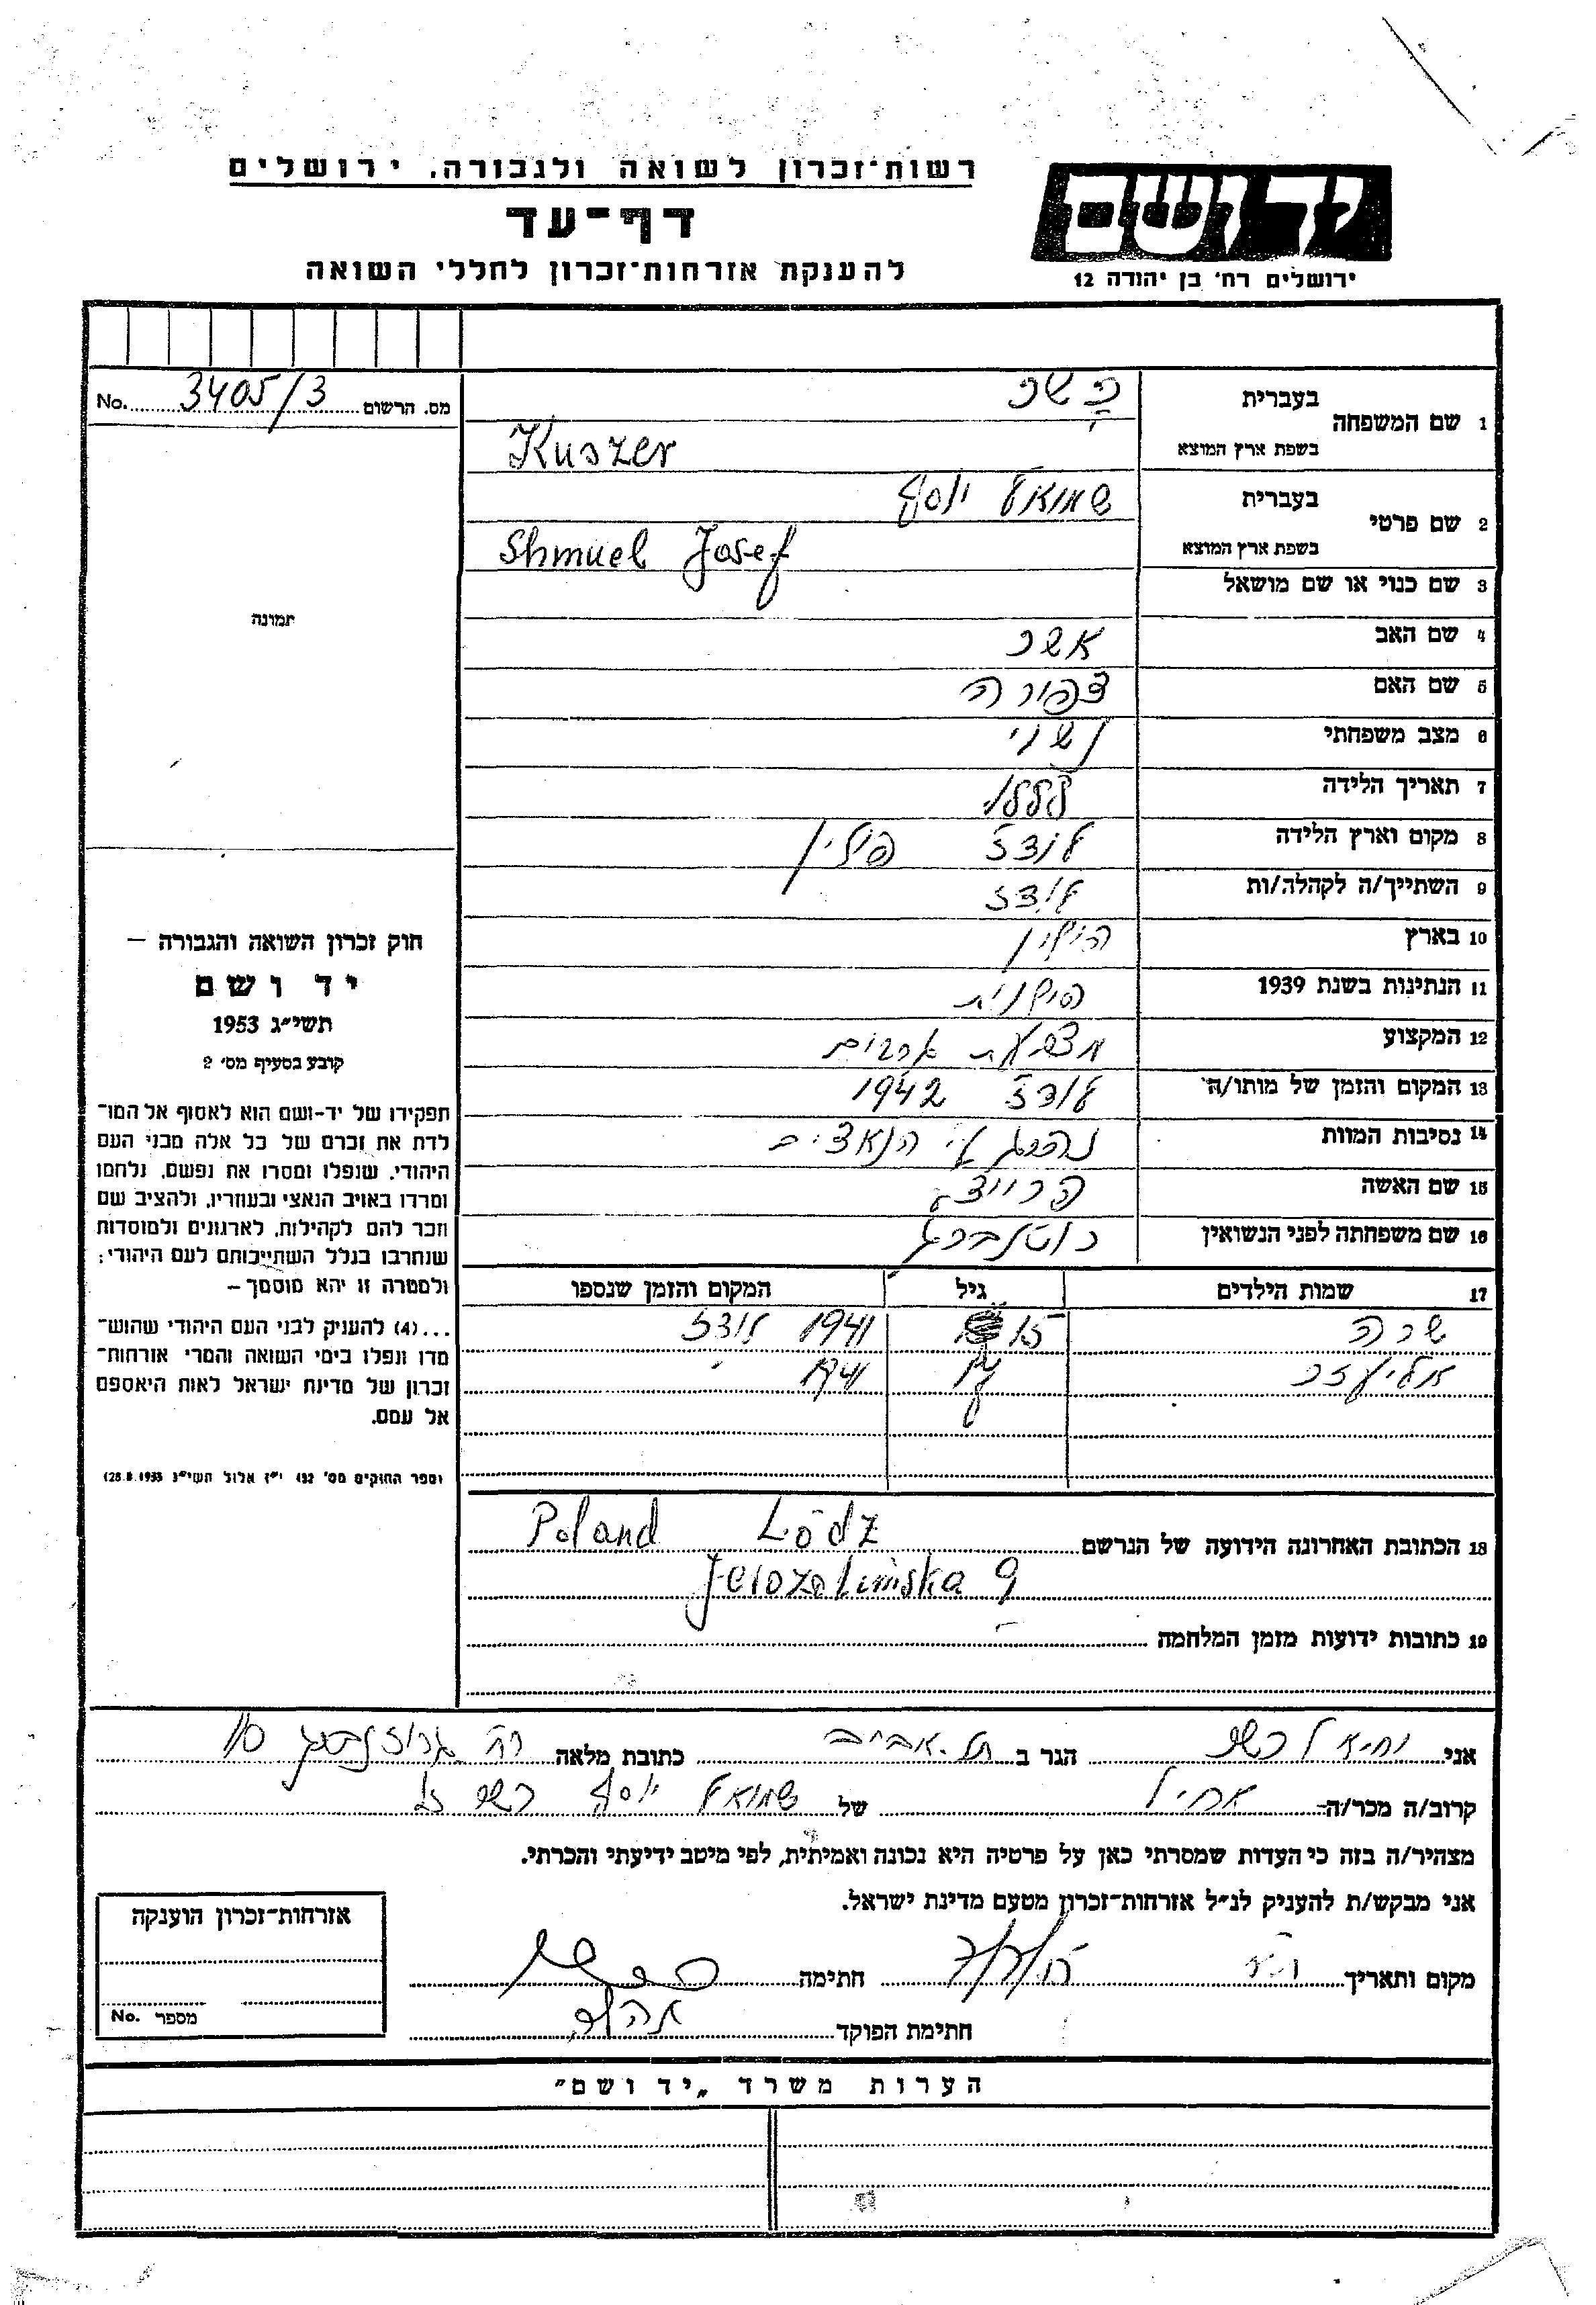 רשות־זכרון לשואה ולגבורה, ירושלים
דף־עד
להענקת אזרחות־זכרון לחללי השואה
יד ושם
ירושלים רח׳ בן יהודה 12
No. 3405/3 מס. הרשום
תמונה
1 שם המשפחה בעברית כשר
בשפת ארץ המוצא Kuszer
2 שם פרטי בעברית שמואל יוסף
בשפת ארץ המוצא Shmuel Josef
3 שם כנוי או שם מושאל
4 שם האב אשר
5 שם האם צפורה
6 מצב משפחתי נשוי
7 תאריך הלידה
8 מקום וארץ הלידה לודז פולין
9 השתייך/ה לקהלה/ות לודז
10 בארץ פולין
11 הנתינות בשנת 1939 פולנית
12 המקצוע
13 המקום והזמן של מותו/ה לודז 1942
14 נסיבות המוות נהרג ע״י הנאצים
15 שם האשה
16 שם משפחתה לפני הנשואין רוטנברג
17 שמות הילדים גיל המקום והזמן שנספו
שרה 15 1941 לודז
אליעזר 1941
18 הכתובת האחרונה הידועה של הנרשם Poland Lödz
Jerozolimska 9
19 כתובות ידועות מזמן המלחמה
חוק זכרון השואה והגבורה –
יד ושם
תשי״ג 1953
קובע בסעיף מס׳ 2
תפקידו של יד-ושם הוא לאסוף אל המו־
לדת את זכרם של כל אלה מבני העם
היהודי, שנפלו ומסרו את נפשם, נלחמו
ומרדו באויב הנאצי ובעוזריו, ולהציב שם
וזכר להם לקהילות, לארגונים ולמוסדות
שנחרבו בגלל השתייכותם לעם היהודי;
ולמטרה זו יהא מוסמך –
...(4) להעניק לבני העם היהודי שהוש־
מדו ונפלו בימי השואה והמרי אזרחות־
זכרון של מדינת ישראל לאות היאספם
אל עמם.
(ספר החוקים מס׳ 132 י״ז אלול תשי״ג 28.8.1953)
אני יחיאל כשר הגר ב תל-אביב כתובת מלאה רח׳ 10
קרוב/ה מכר/ה של שמואל יוסף כשר ז״ל
מצהיר/ה בזה כי העדות שמסרתי כאן על פרטיה היא נכונה ואמיתית, לפי מיטב ידיעתי והכרתי.
אני מבקש/ת להעניק לנ״ל אזרחות־זכרון מטעם מדינת ישראל.
מקום ותאריך חתימה
חתימת הפוקד
אזרחות־זכרון הוענקה
No. מספר
הערות משרד „יד ושם״